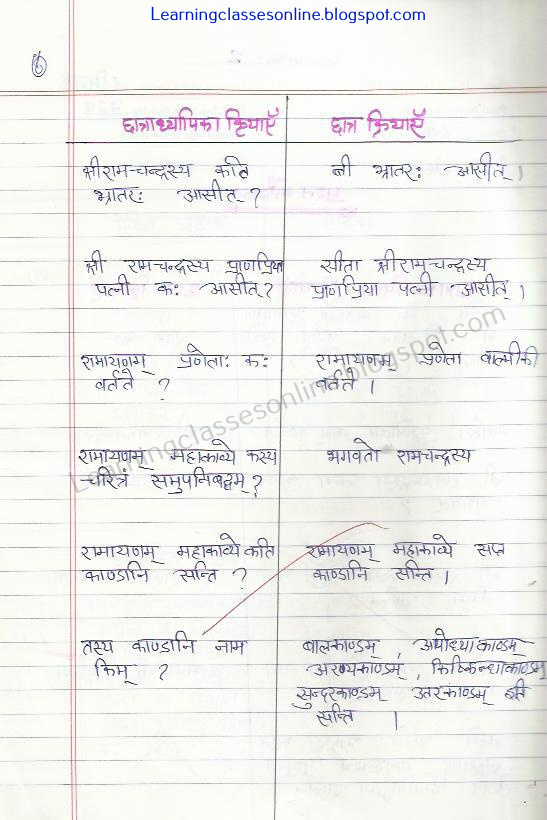 Learningclassesonline.blogspot.com
6
छात्राध्यापिका क्रियाएँ छात्र क्रियाएँ
श्रीरामचन्द्रस्य कति त्री भ्रातरः आसीत्।
भ्रातरः आसीत्?
श्री रामचन्द्रस्य प्राणप्रिया सीता श्रीरामचन्द्रस्य
पत्नी कः आसीत्? प्राणप्रिया पत्नी आसीत्।
रामायणम् प्रणेताः कः रामायणम् प्रणेता वाल्मीकी
वर्तते ? वर्तते।
रामायणम् महाकाव्ये कस्य भगवतो रामचन्द्रस्य
चरित्रं समुपनिबद्धम्?
रामायणम् महाकाव्ये कति रामायणम् महाकाव्ये सप्त
काण्डानि सन्ति ? काण्डानि सन्ति।
तस्य काण्डानि नाम बालकाण्डम्, अयोध्याकाण्डम्
किम् ? अरण्यकाण्डम्, किष्किन्धाकाण्डम्
सुन्दरकाण्डम् उतरकाण्डम् इति
सन्ति ।
Learningclassesonline.blogspot.com